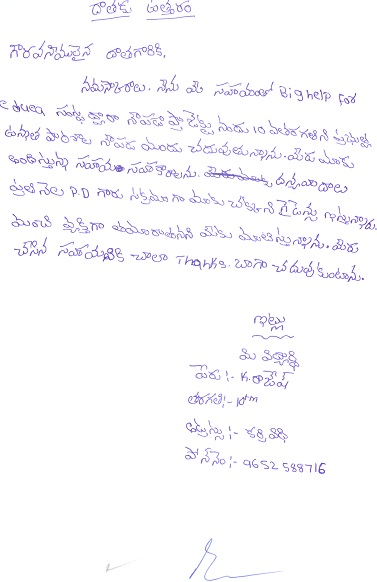 దాతకు ఉత్తరం
గౌరవనీయులైన దాతగారికి,
నమస్కారాలు. నేను మీ సహాయంతో Big help For
సంస్థ ద్వారా నౌపడా ప్రాజెక్టు నుండి 10 వతరగతిని ప్రభుత్వ
ఉన్నత పాఠశాల నౌపడ నందు చదువుతున్నాను. మీరు మాకు
అందిస్తున్న సహాయ సహకారాలను. ధన్యవాదాలు
ప్రతి నెల P.D గారు సక్రమంగా మాకు చక్కని గైడెన్సు ఇస్తున్నారు.
మంచి వ్యక్తిగా తయారవుతానని మీకు మాటిస్తున్నాను. మీరు
చేసిన సహాయానికి చాలా Thanks. బాగా చదువుకుంటాను.
ఇట్లు
మీ విద్యార్థి
పేరు :- K. రాజేష్
తరగతి :- 10th
అడ్రస్సు :-
ఫోన్ నెం :- 9652588716